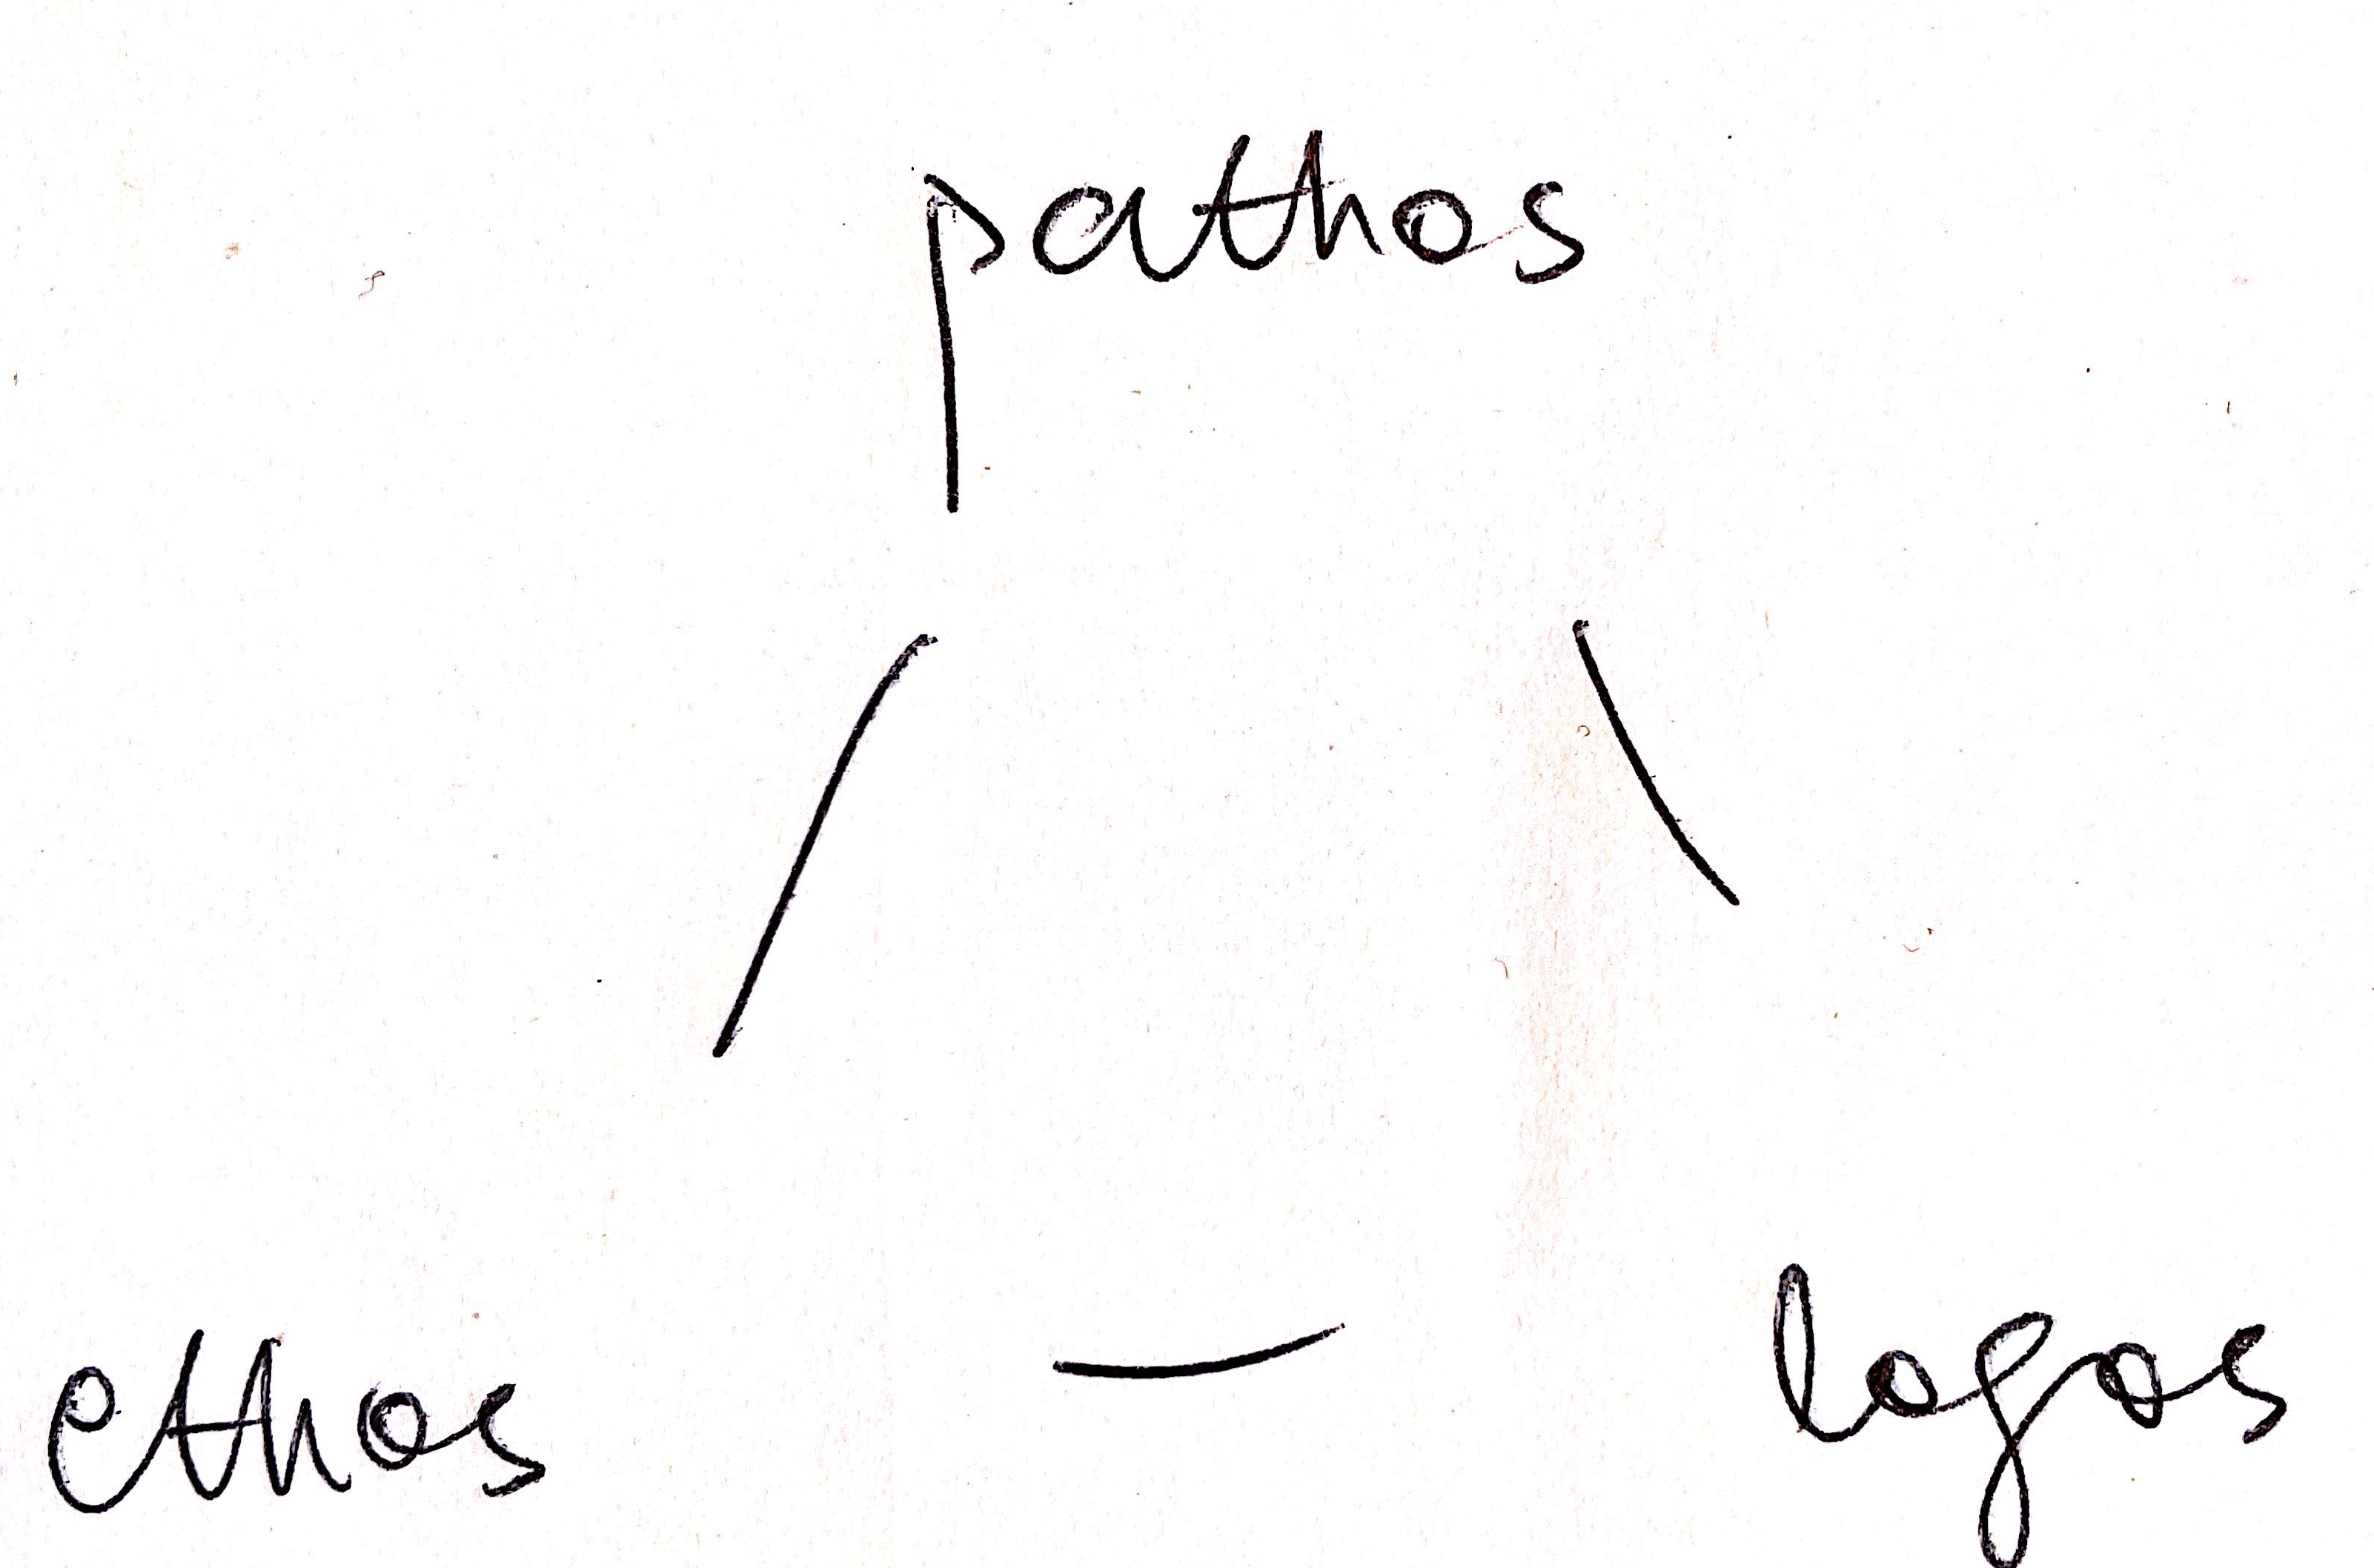 pathos
ethos
logos